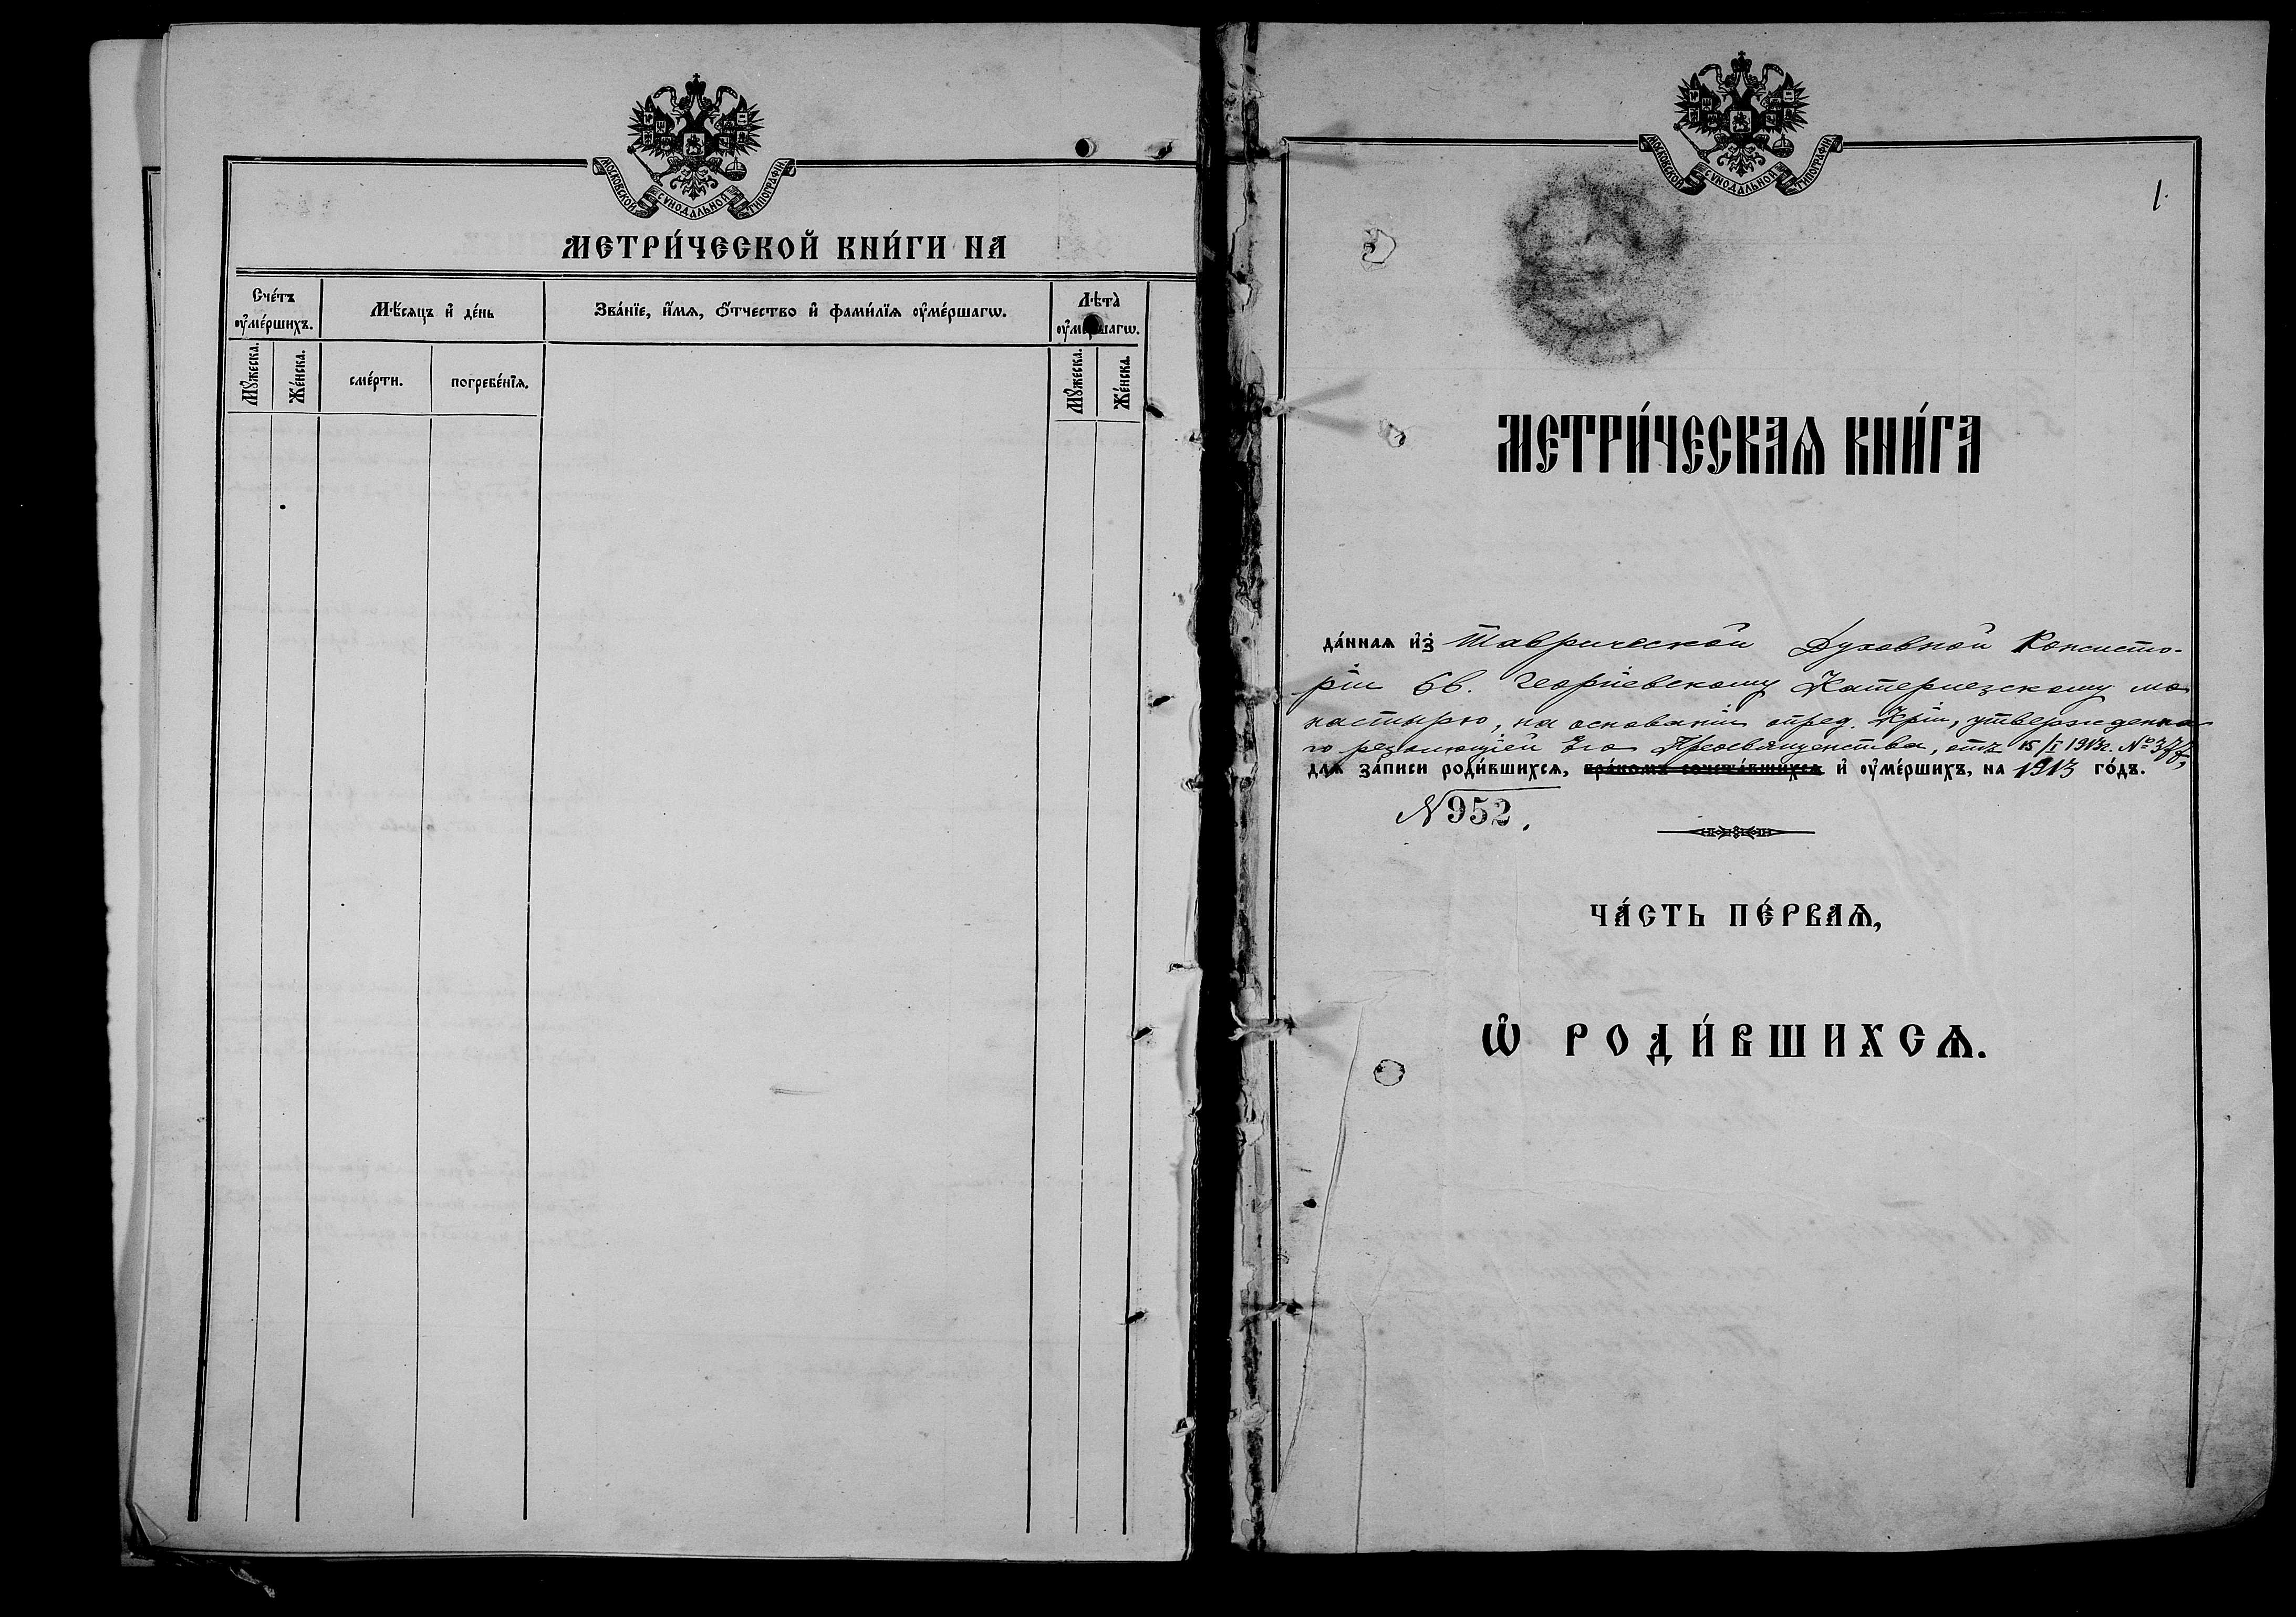 МОСКОВСКОЙ СѴНОДАЛЬНОЙ ТИПОГРАФІИ
МЕТРИ́ЧЕСКОЙ КНИ́ГИ НА
Сче́тъ
оу҆ме́ршихъ.
Мѣ́сяцъ и҆ де́нь
Зва́нїе, и҆́мѧ, ѻ҆́тчество и҆ фами́лїѧ оу҆ме́ршагѡ.
Лѣ́та
оу҆ме́ршагѡ.
Мꙋ́жеска.
Же́нска.
сме́рти.
погребе́нїѧ.
Мꙋ́жеска.
Же́нска.
МОСКОВСКОЙ СѴНОДАЛЬНОЙ ТИПОГРАФІИ
1.
МЕТРИ́ЧЕСКАѦ КНИ́ГА
да́ннаѧ и҆з̾ Таврической Духовной Консисто-
ріи Св. Георгіевскому Катерлезскому мо
настырю, на основаніи опред. Кріи, утвержденна
го резолюціей Его Преосвященства, отъ 15/I 1913г. №
длѧ за́писи роди́вшихсѧ, бра́комъ сочета́вшихсѧ и҆ оу҆ме́ршихъ, на 1913 го́дъ.
N 952.
ЧА́СТЬ ПЕ́РВАѦ,
Ѡ҆ РОДИ́ВШИХСѦ.